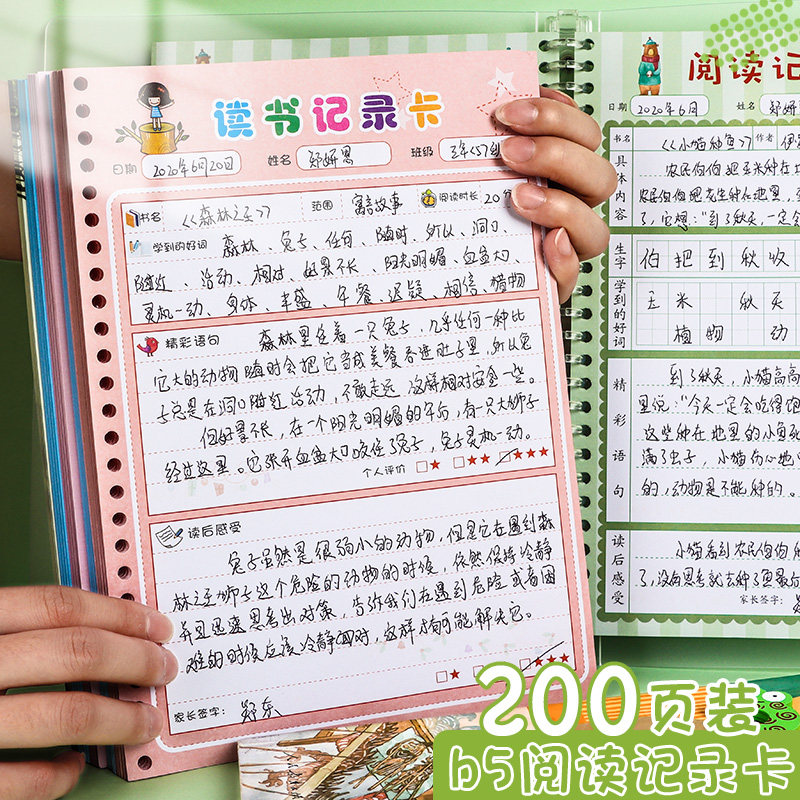 读书记录卡
日期 2020年6月20日 姓名 郑妍恩 班级
书名 《森林之王》 范围 寓言故事 阅读时长 20分
学到的好词 森林、兔子、任何、随时、所以、洞口、
附近、活动、相对、好景不长、阳光明媚、血盆大口、
灵机一动、身体、丰盛、午餐、迟疑、相信、猎物
精彩语句 森林里住着一只兔子，几乎任何一种比
它大的动物随时会把它当成美餐吞进肚子里，所以兔
子总是在洞口附近活动，不敢走远 这样相对安全一些。
但好景不长，在一个阳光明媚的午后，有一只大狮子
经过这里。它张开血盆大口咬住了兔子，兔子灵机一动。
个人评价 ★ ★★ ★★★
读后感受
兔子虽然是很弱小的动物，但是它在遇到森
林之王狮子这个危险的动物的时候，依然保持冷静
并且迅速思考出对策，告诉我们在遇到危险或者困
难的时候应该冷静面对，这样才有可能解决它。
★ ★★ ★★★
家长签字： 郑东
阅读记
日期 2020年6月 姓名 郑妍
书名 《小猫种鱼》 作者
具体内容
农民伯伯把玉米种在地
农民伯伯把花生种在地里，
了，它想：“到了秋天，一定会
生字 伯 把 到 秋 收
学到的好词
玉 米 秋 天
植 物 动
精彩语句
到了秋天，小猫高高
里说：“今天一定会吃得饱
这些种在地里的小鱼死
满了虫子，小猫伤心地
的，动物是不能种的。
读后感受
小猫看到农民伯伯
了，没有思考就去种
家长签字：
200页装
b5阅读记录卡